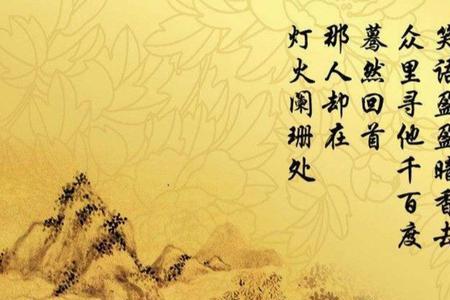 笑语盈盈暗香去
众里寻他千百度
蓦然回首
那人却在
灯火阑珊处